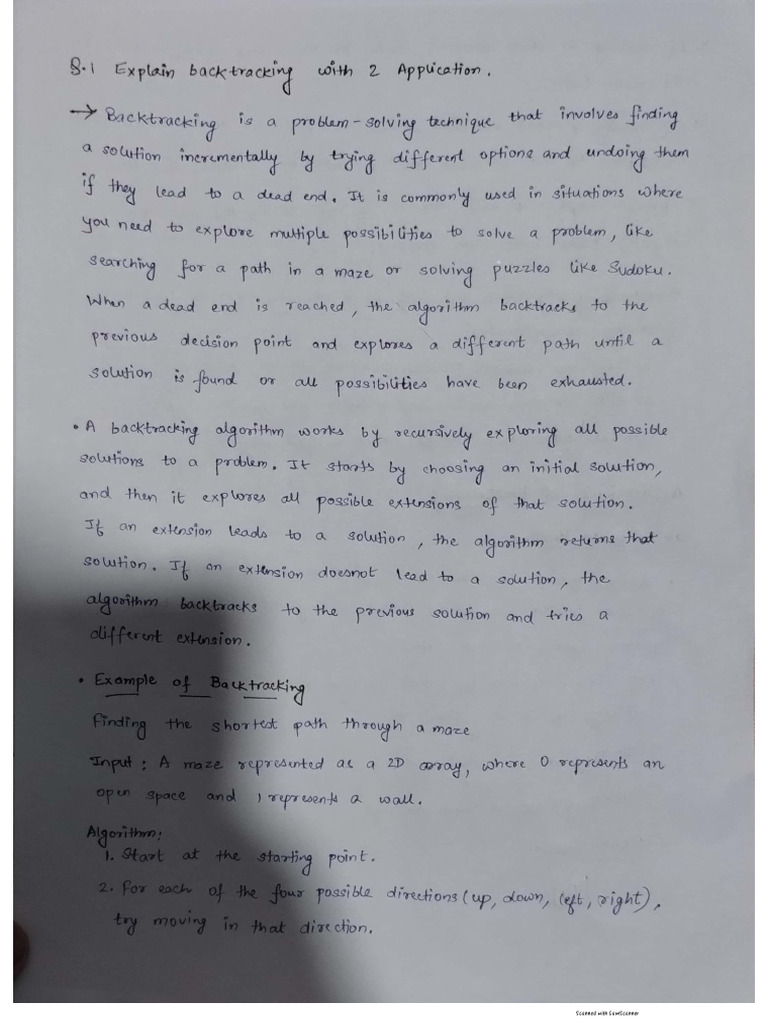 Q.1 Explain backtracking with 2 Application.
→ Backtracking is a problem-solving technique that involves finding
a solution incrementally by trying different options and undoing them
if they lead to a dead end. It is commonly used in situations where
you need to explore multiple possibilities to solve a problem, like
searching for a path in a maze or solving puzzles like Sudoku.
When a dead end is reached, the algorithm backtracks to the
previous decision point and explores a different path until a
solution is found or all possibilities have been exhausted.
• A backtracking algorithm works by recursively exploring all possible
solutions to a problem. It starts by choosing an initial solution,
and then it explores all possible extensions of that solution.
If an extension leads to a solution, the algorithm returns that
solution. If an extension doesnot lead to a solution, the
algorithm backtracks to the previous solution and tries a
different extension.
• Example of Backtracking
Finding the shortest path through a maze
Input: A maze represented as a 2D array, where 0 represents an
open space and 1 represents a wall.
Algorithm:
1. Start at the starting point.
2. For each of the four possible directions (up, down, left, right),
try moving in that direction.
Scanned with CamScanner